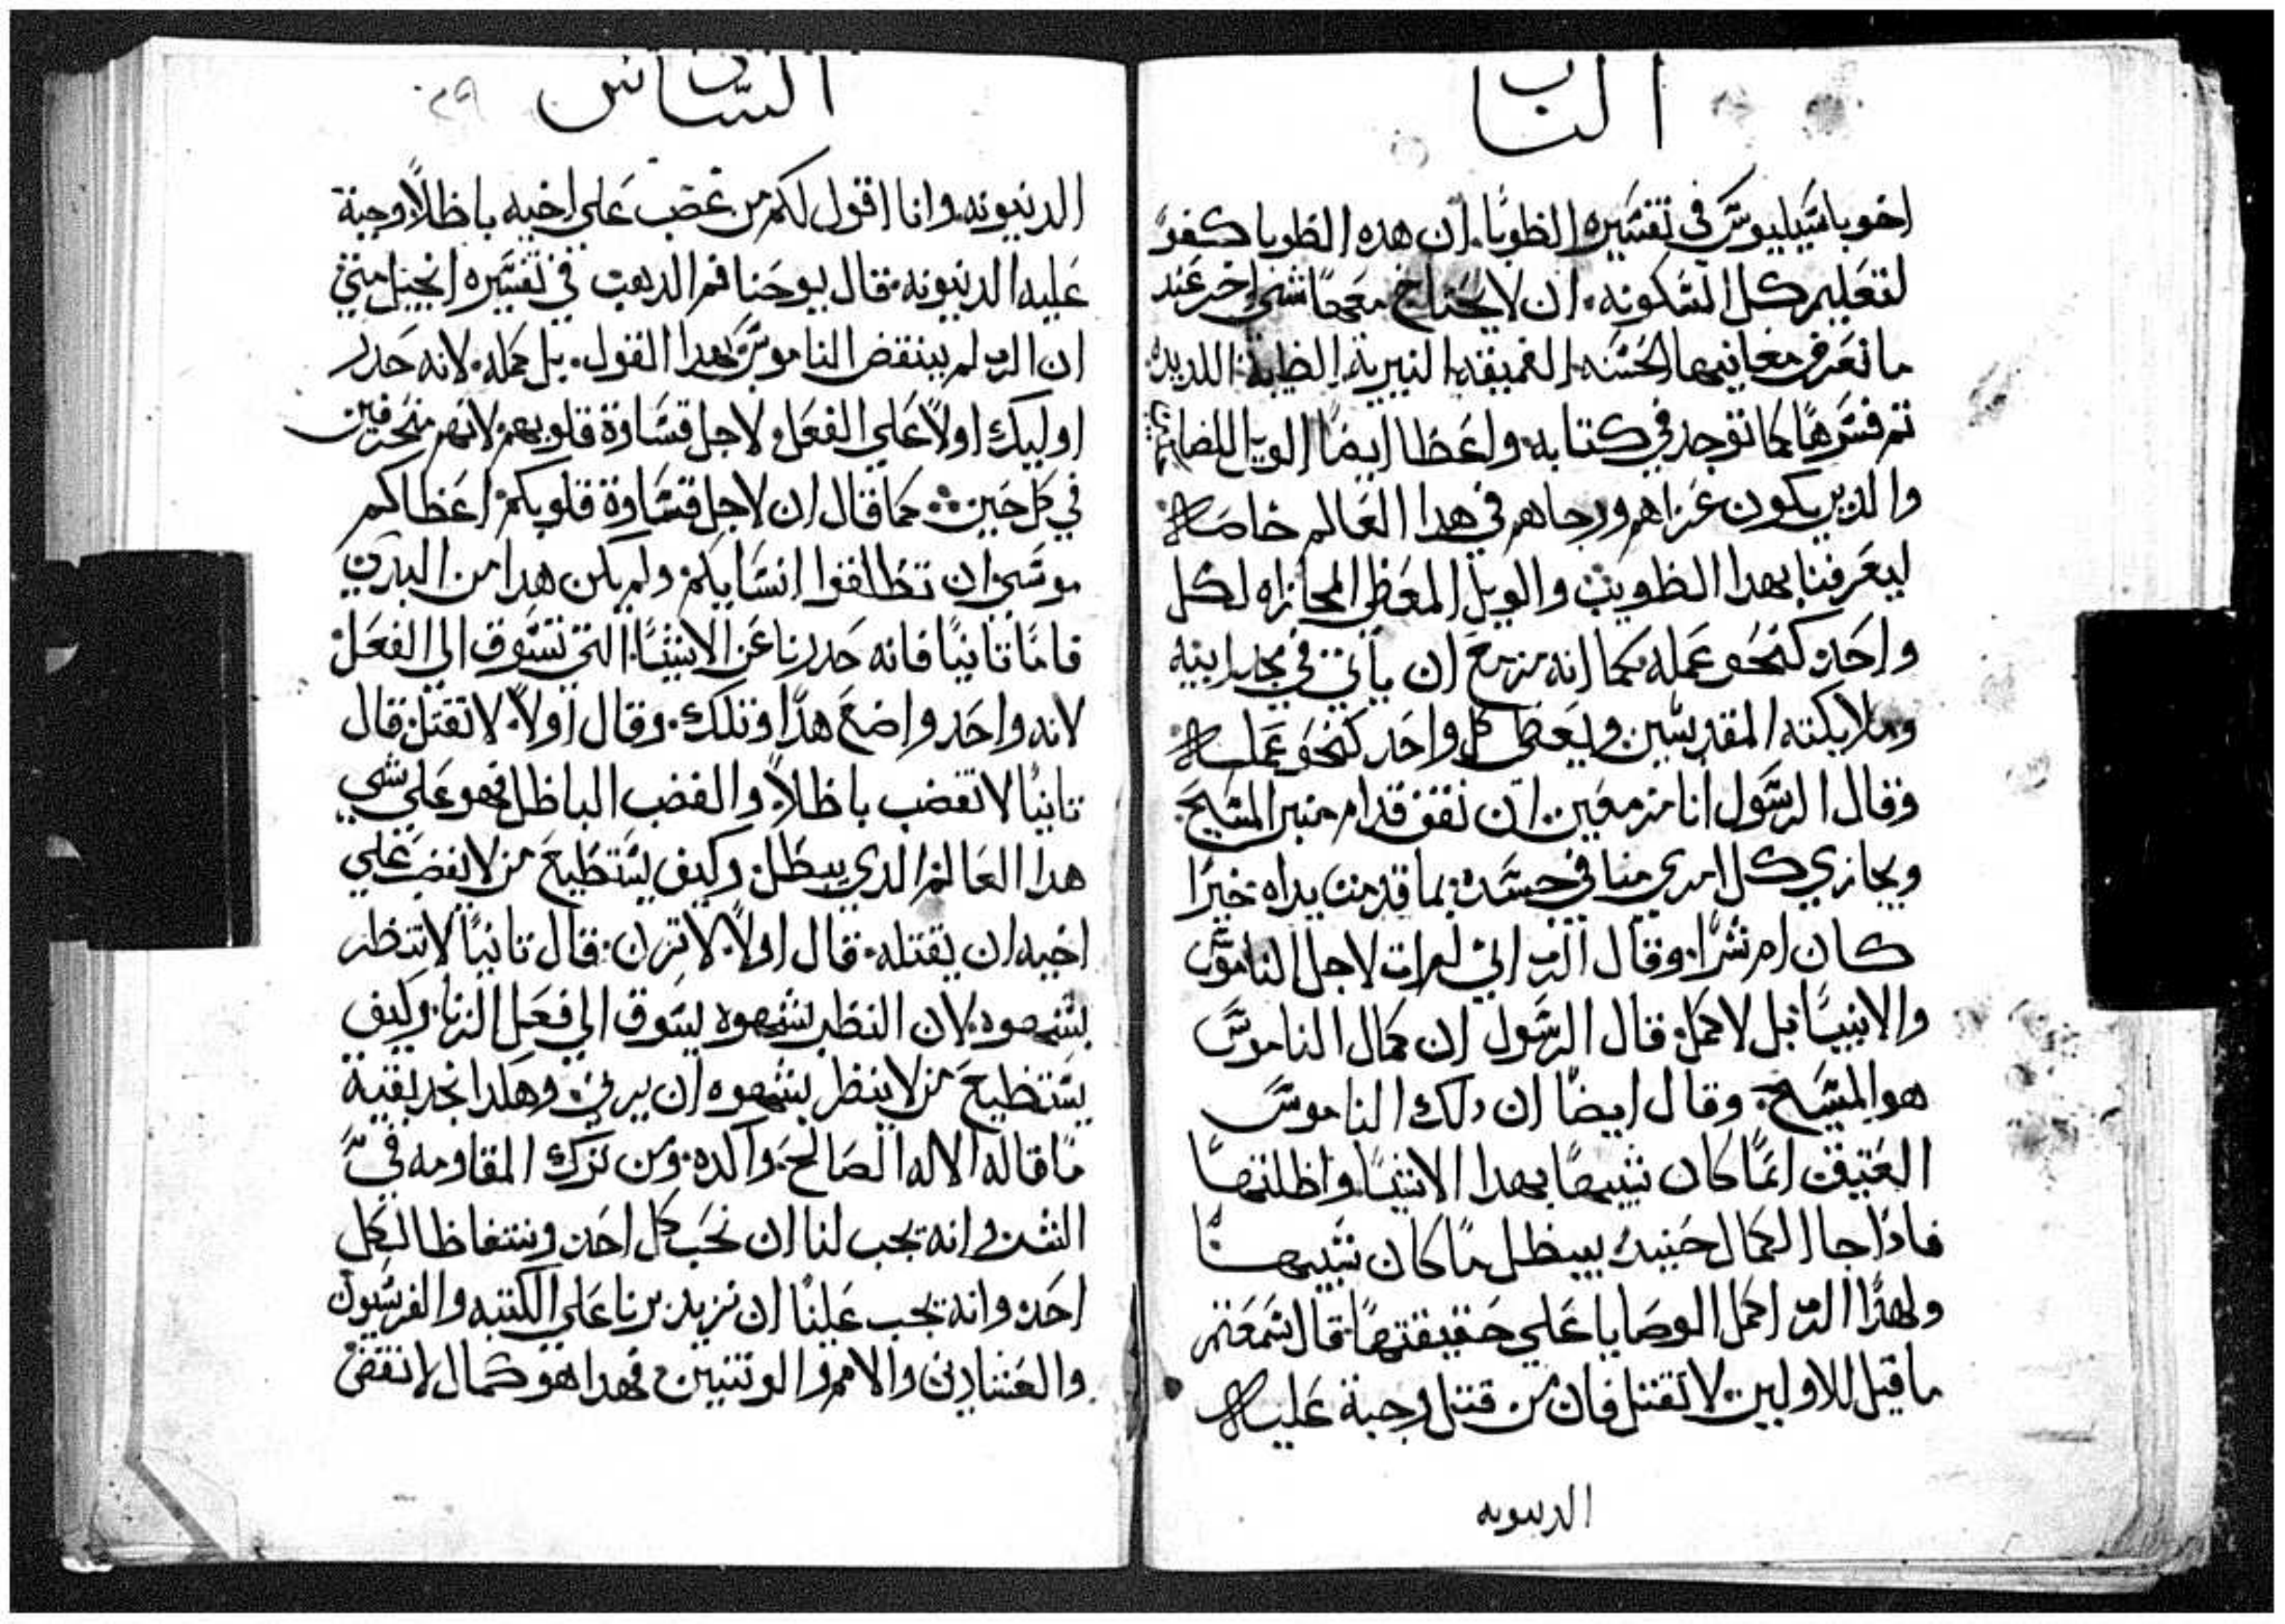 الباب
اخو باسيليوس في تفسيره الطوبا. ان هده الطوبا كفوً
لتعليم كل المسكونه. ان لا يحتاج معها شي اخر عند
ما نعرف معانيها الحسنه العميقه النيرية الطيبة اللديده
تم فسرها كما توجد في كتابه واعطا ايضا الويل
والدين يكون عزاهم ورجاهم في هدا العالم خاصه
ليعرفنا بهدا الطويت والويل المعطي المجازاه لكل
واحد كنحو عمله كما انه مزمع ان ياتي في مجد ابيه
وملايكته المقديسين ويعطي كل واحد كنحو عمله
وقال الرسول انا مزمعين ان نقف قدام منبر المسيح
ويجازي كل امري منا في جسده بما قدمت يداه خيرا
كان ام شرا. وقال الرب اني لم ات لاجل الناموس
والانبيا بل لاكمل. قال الرسول ان كمال الناموس
هو المسيح. وقال ايضا ان دلك الناموس
العتيق انما كان شبيها بهدا الاشيا واظلتها
فادا جا الكمال حينيد يبطل ما كان شبيها
ولهدا الرب اكمل الوصايا علي حقيقتها قال سمعتم
ما قيل للاولين لا تقتل فان من قتل وجبة عليه
الدينونه
السادس
٢٩
الدينونه. وانا اقول لكم من غضب علي اخيه باطلاً وجبة
عليه الدينونه. قال يوحنا فم الدهب في تفسيره انجيل متي
ان الرب لم ينقض الناموس بهدا القول. بل كمله. لانه حدر
اوليك اولاً علي الفعل ولاجل قساوة قلوبهم لانهم منحرفين
في كل حين كما قال ان لاجل قساوة قلوبكم اعطاكم
موسي ان تطلقوا انسايكم ولم يكن هدا من البدي
فاما تانيا فانه حدرنا عن الاشيا التي تسوق الي الفعل
لانه واحد واضع هدا وتلك. وقال اولاً لا تقتل قال
تانيا لا تغضب باطلاً. والغضب الباطل فهو علي شي
هدا العالم الدي يبطل وكيف يستطيع من لا يغضب علي
اخيه ان يقتله. قال اولاً لا تزن. قال تانيا لا تنظر
بشهوه. لان النظر بشهوه يسوق الي فعل الزنا. وكيف
يستطيع من لا ينظر بشهوه ان يزني وهكدا نجد بقية
ما قاله الاله الصالح. واكده. ومن ترك المقاومه في
الشر وانه يجب لنا ان نحب كل احد ونتعاطا لكل
احد وانه يجب علينا ان نزيد برنا علي الكتبه والفريسيون
والعشارين والامم والوتنيين فهدا هو كمال لا نقض